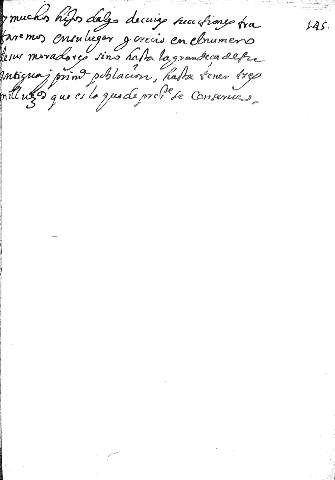 y muchos hijos dalgo de cuias sucesiones tra 145
taremos en su lugar y crecio en el numero
de sus moradores sino hasta la grandeça de su
antigua i primª poblacion, hasta tener tres
mill uzºs que es lo que de prste se conserua.